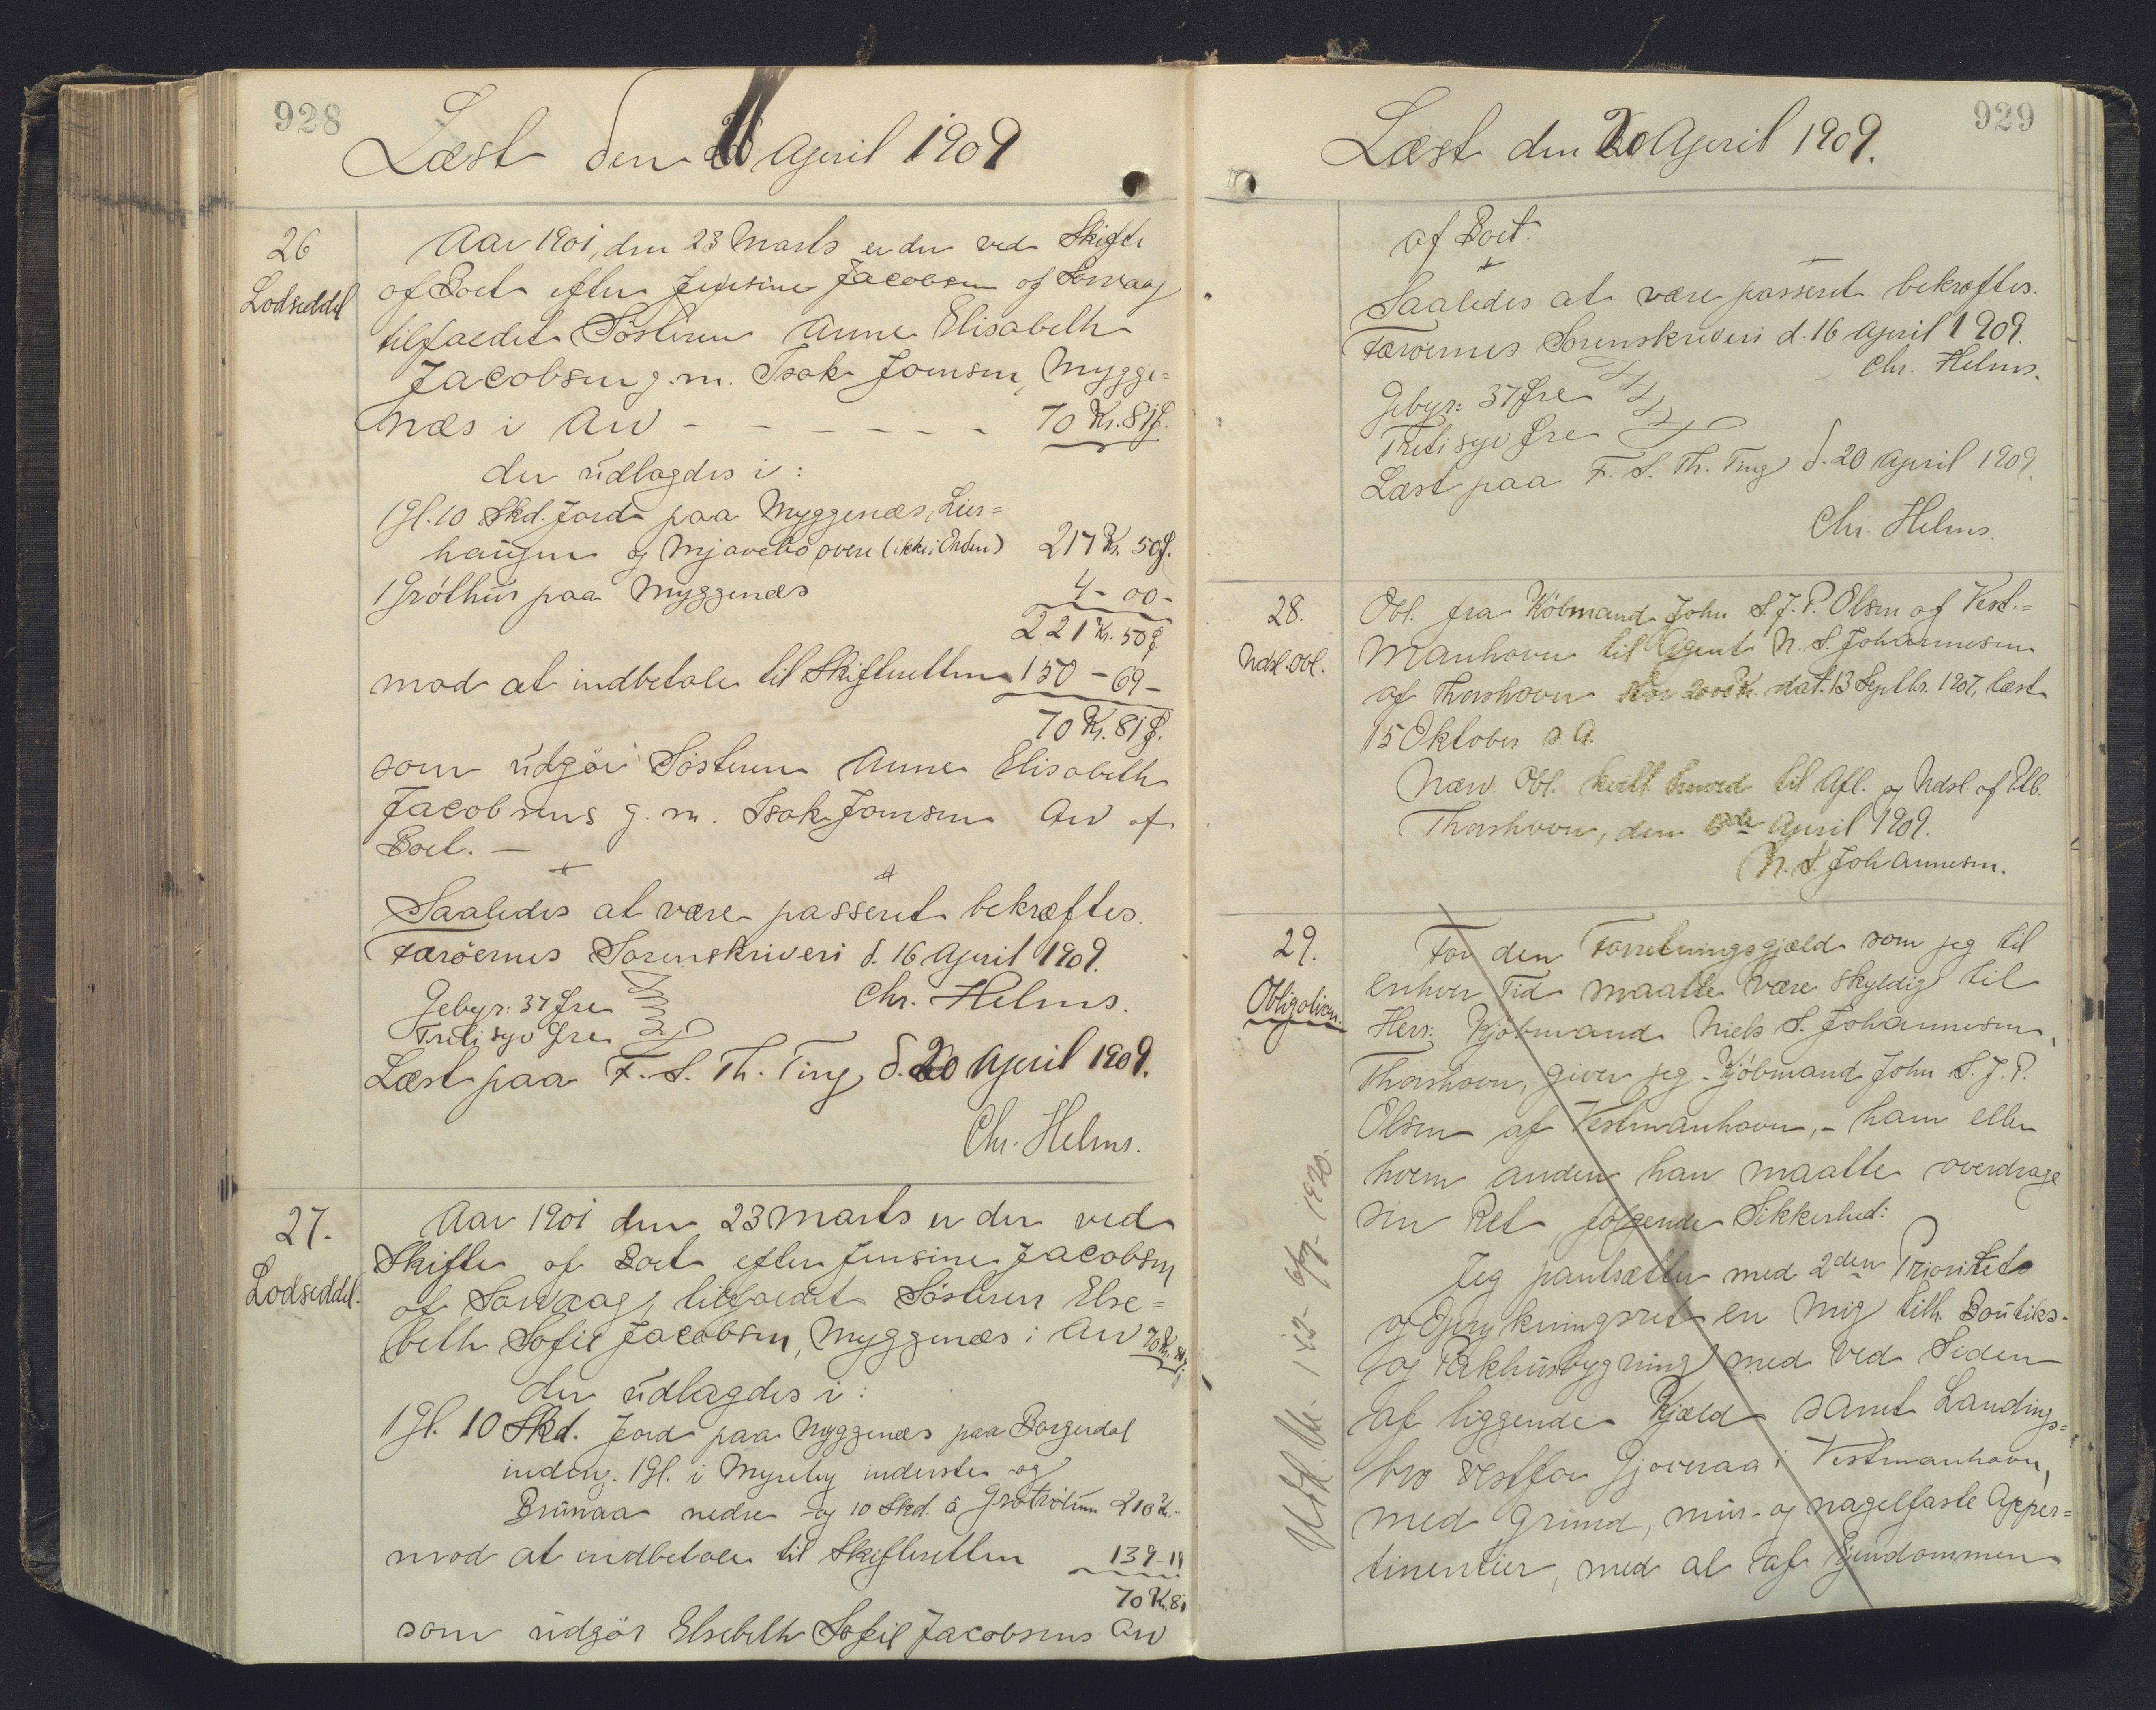 928
Læst den 20 April 1909
26
Lodseddel
Aar 1901, den 23 Marts er der ved Skifte
af Boet efter Jensine Jacobsen af Sørvaag
tilfaldet Søsteren Anne Elisabeth
Jacobsen g. m. Isak Joensen, Mygge=
næs i Arv - - - - - - 70 Kr. 81 Ø.
der udlagdes i:
1 Gl. 10 Skd. Jord paa Myggenæs, Lier=
haugen og Mjavebø øvre (ikke i Orden) 217 Kr. 50 Ø.
1 Gróthus paa Myggenæs 4 - 00 -
221 Kr. 50 Ø
mod at indbetale til Skifteretten 150 - 69 -
70 Kr. 81 Ø.
som udgør Søsteren Anne Elisabeth
Jacobsens g. m. Isak Joensen Arv af
Boet. —
Saaledes at være passeret bekræftes.
Færøernes Sorenskriveri d. 16 April 1909.
Chr. Helms.
Gebyr: 37 Øre
Tretisyv Øre
Læst paa F. S. Th. Ting, d. 20 April 1909.
Chr. Helms.
27.
Lodseddel.
Aar 1901 den 23 Marts er der ved
Skifte af Boet efter Jensine Jacobsen
af Sørvaag, tilfaldet Søsteren Else=
beth Sofie Jacobsen, Myggenæs i Arv 70 Kr. 81
der udlagdes i:
1 Gl. 10 Skd. Jord paa Myggenæs paa Borgardal
indeng. 1 Gl. i Myreby inderste og
Brunaa nedre og 10 Skd. á 210 Kr. -
mod at indbetale til Skifteretten 139 - 19
70 Kr. 81
som udgør Elsebeth Sofie Jacobsens Arv
929
Læst den 20 April 1909.
af Boet.
Saaledes at være passeret bekræftes.
Færøernes Sorenskriveri d. 16 April 1909.
Chr. Helms.
Gebyr: 37 Øre
Tretisyv Øre
Læst paa F. S. Th. Ting d. 20 April 1909.
Chr. Helms.
28.
Udsl. Obl.
Obl. fra Købmand John S. J. P. Olsen af Vest-=
manhavn til Agent N. S. Johannesen
af Thorshavn stor 2000 Kr. dat. 13 Septbr. 1907, læst
15 Oktober s. A.
Nærv. Obl. kvitt. herved til Afl. og Udsl. af Ptb.
Thorshavn, den 13de April 1909.
N. S. Johannesen.
29.
Obligation.
For den Forretningsgjæld som jeg til
enhver Tid maatte være skyldig til
Herr: Kjøbmand Niels S. Johannesen,
Thorshavn, giver jeg Kjøbmand John S. J. P.
Olsen af Vestmanhavn, - ham eller
hvem anden han maatte overdrage
sin Ret, følgende Sikkerhed:
Jeg pantsætter med 2den Prioritets
og Oprykningsret en mig tilh. Boutiks-
og Pakhusbygning med ved Siden
af liggende Kjæld samt Landings=
bro vestfor Gjovraa i Vestmanhavn,
med Grund, mur- og nagelfaste Apper=
tinentier, med al af Ejendommen